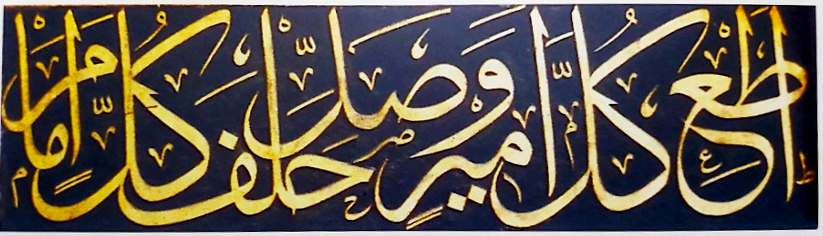 اطع كل امير وصل خلف كل امام